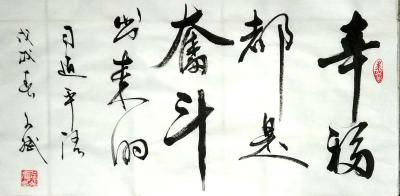 幸福
都是
奋斗
出来的
习近平语
戊戌春 文斌